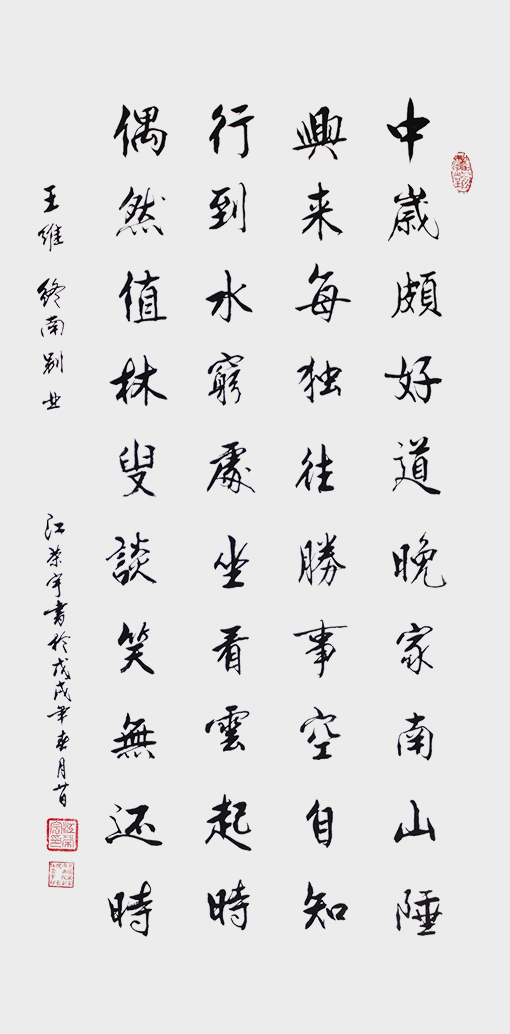 中歳頗好道晚家南山陲
興来每独往勝事空自知
行到水窮處坐看雲起時
偶然值林叟談笑無还時
王維 終南别业
江荣宇書於戊戌年春月